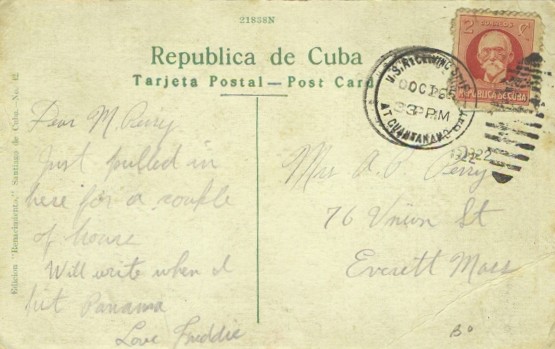 21838N
Republica de Cuba
Tarjeta Postal — Post Card
2 CORREOS C
REPUBLICA DE CUBA
U.S. RECEIVING SHIP
OCT 25
3 PM
AT GUANTANAMO
1922
Dear M. Perry
Just pulled in
here for a couple
of hours
Will write when I
hit Panama
Love Freddie
Mrs A. P. Perry
76 Union St
Everett Mass
Edicion "Renacimiento," Santiago de Cuba.—No. 12